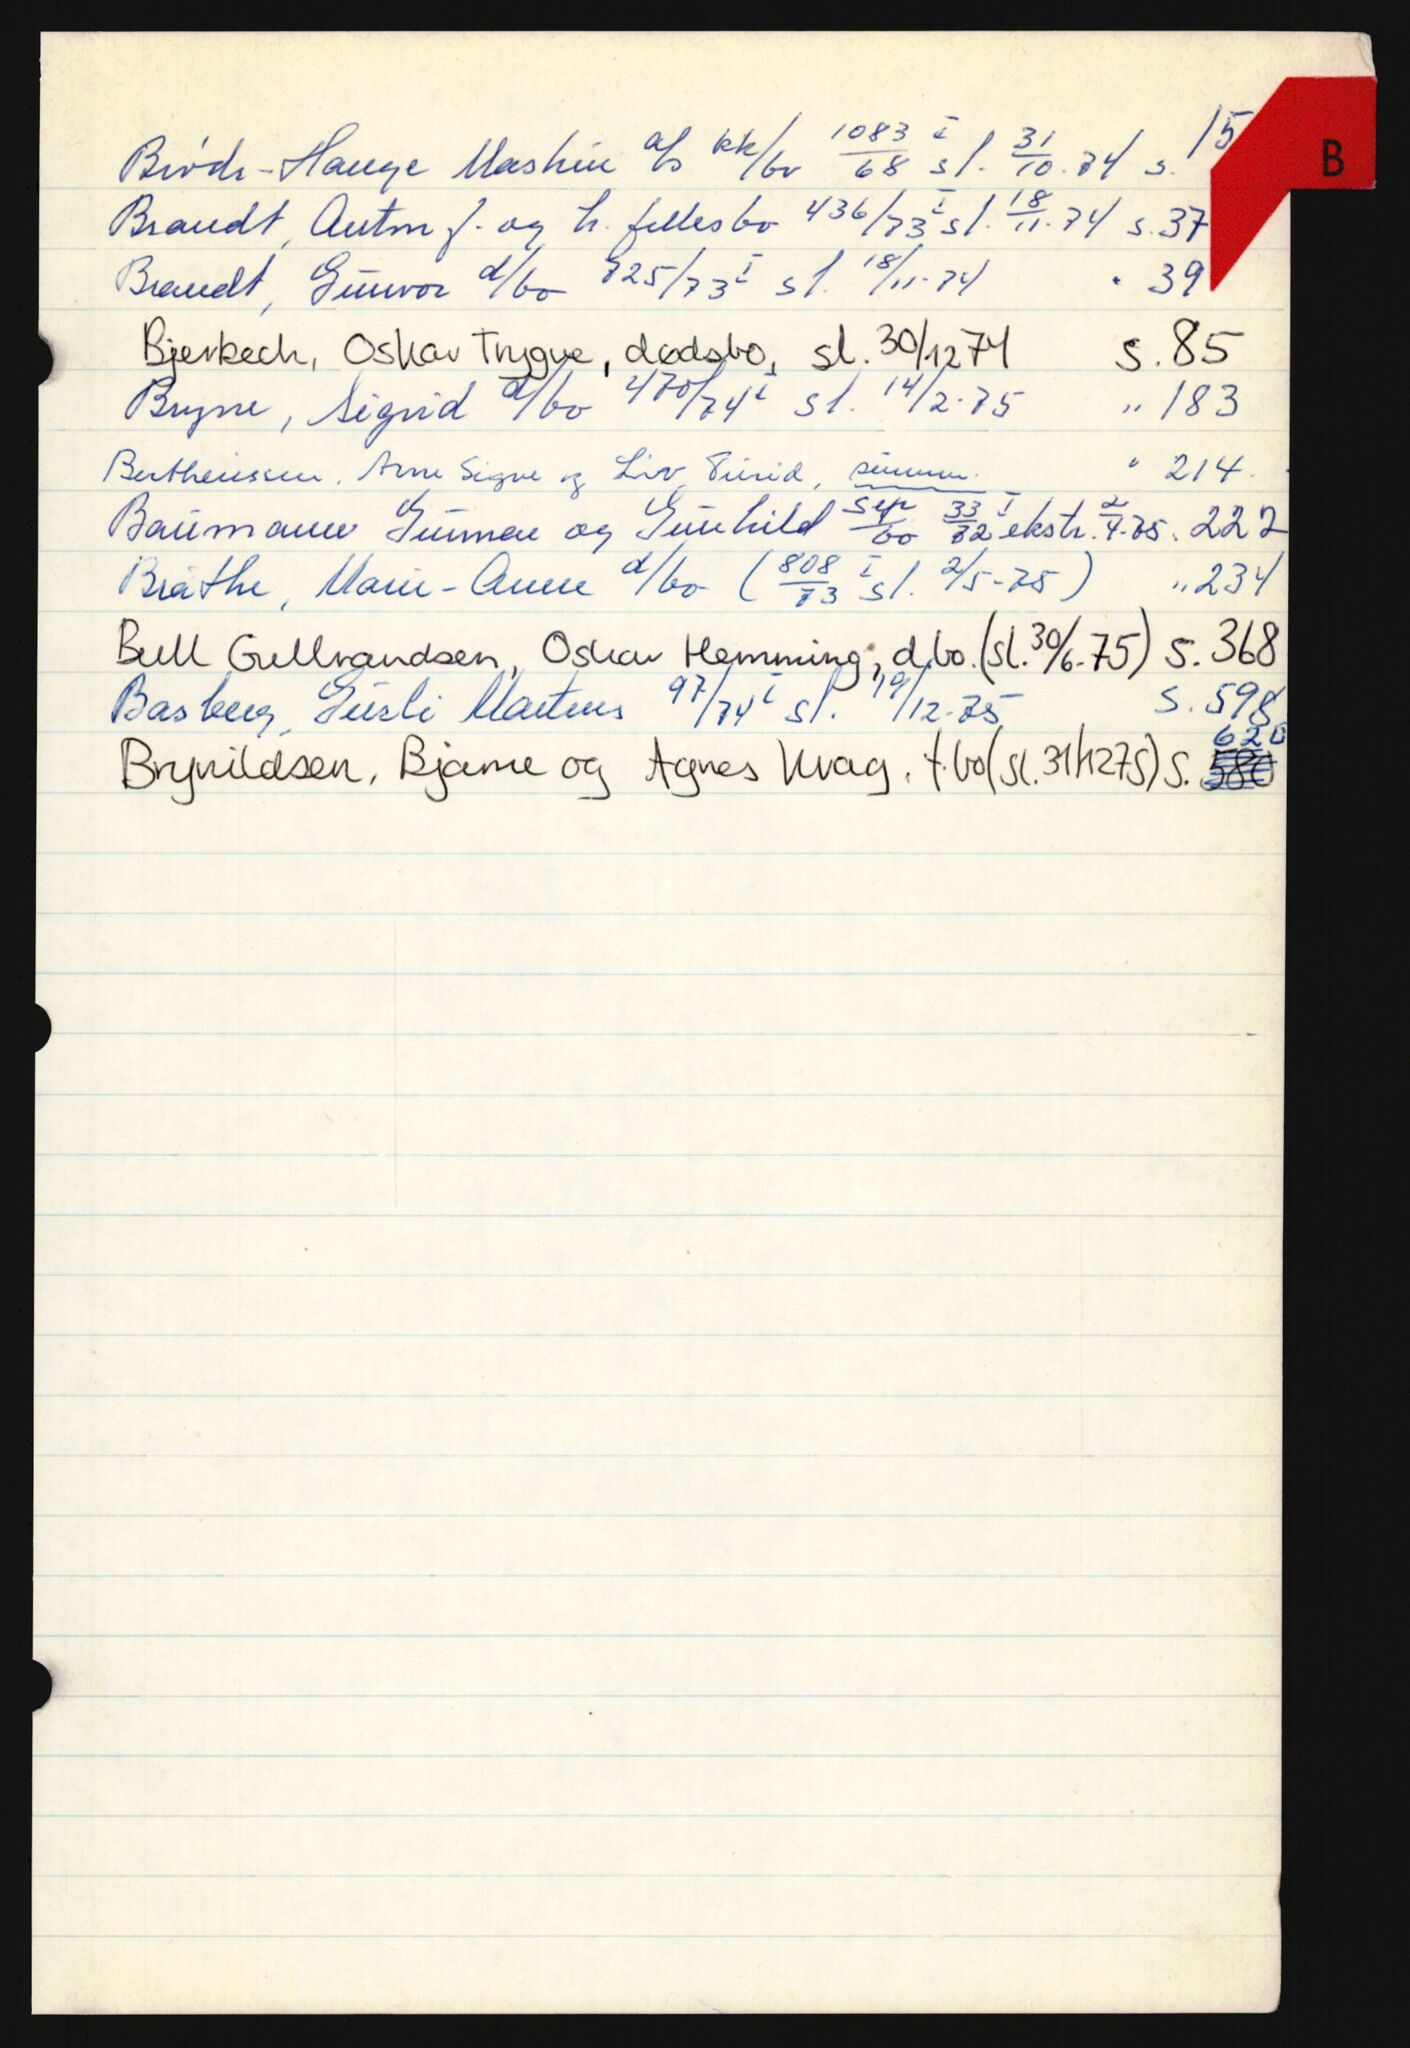 B
Brødr-Hauge Maskin a/s kk/bo 1083/68 I sl. 31/10.74 s. 15
Brandt, Anton f. og h. fellesbo 436/73 I sl. 18/11.74 s. 37
Brandt, Gunvor d/bo 725/73 I sl. 18/11-74 " 39
Bjerkech, Oskar Trygve, dødsbo, sl. 30/12 74 s. 85
Bryne, Sigrid d/bo 470/74 I sl. 14/2-75 " 183
Bertheussen, Arne Sigve og Liv Turid, " 214.
Baumann Gunnar og Gunhild Sep/bo 33/72 I ekstr. 2/4-75. 227
Bråthe, Marie-Anne d/bo (808/73 I sl. 2/5-75) " 234
Bull Gullrandsen, Oskar Hemming, d.bo. (sl. 30/6-75) S. 368
Basberg, Gusli Martens 97/74 I sl. 19/12-75 S. 598
620
Brynildsen, Bjarne og Agnes Kvag. f.bo (sl. 31/12 75) S. 580